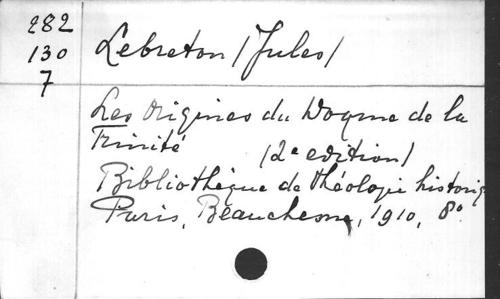 282
130
7
Lebreton (Jules)
Les Origines du Dogme de la
Trinité (2e edition)
Bibliothèque de théologie historiq
Paris, Beauchesne, 1910, 8o